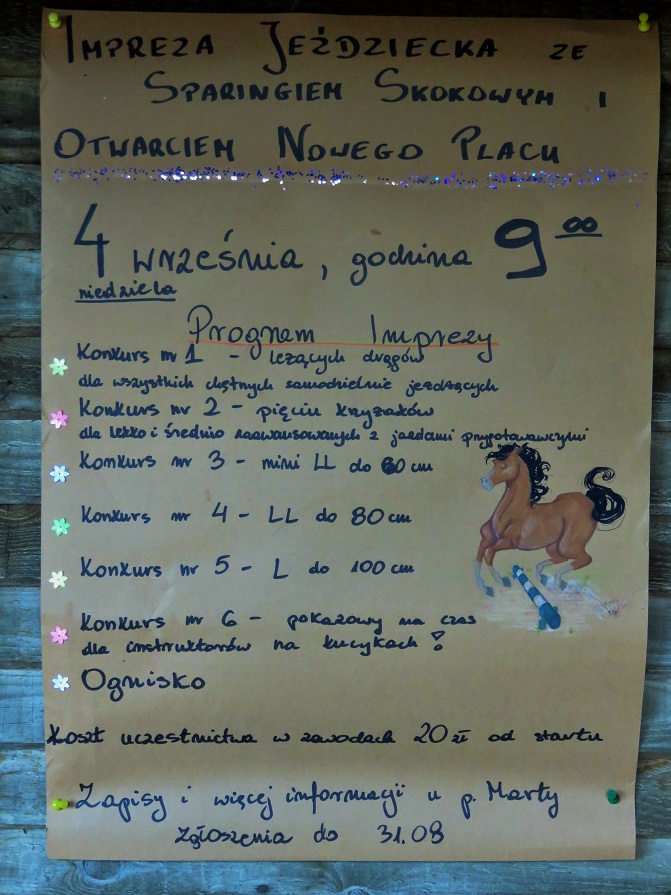 Impreza Jeździecka ze
Sparingiem Skokowym i
Otwarciem Nowego Placu
4 września, godzina 9⁰⁰
niedziela
Program Imprezy
Konkurs nr 1 - leżących drągów
dla wszystkich chętnych samodzielnie jeżdżących
Konkurs nr 2 - pięciu krzyżaków
dla lekko i średnio zaawansowanych z jazdami przygotowawczymi
Konkurs nr 3 - mini LL do 60 cm
Konkurs nr 4 - LL do 80 cm
Konkurs nr 5 - L do 100 cm
Konkurs nr 6 - pokazowy na czas
dla instruktorów na kucykach!
Ognisko
Koszt uczestnictwa w zawodach 20 zł od startu
Zapisy i więcej informacji u p. Marty
Zgłoszenia do 31.08